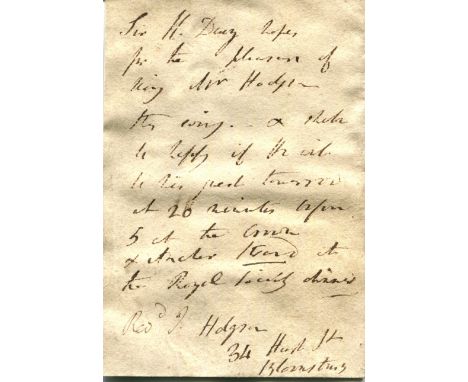 Sir H. Davy hopes
for the pleasure of
Mr Hodgson
this evng. &
be happy if He will
be his guest tomorrow
at 20 minutes
5 at the Crown
& Anchor at
the Royal Society dinner
Revd J. Hodgson
34 St
Bloomsbury